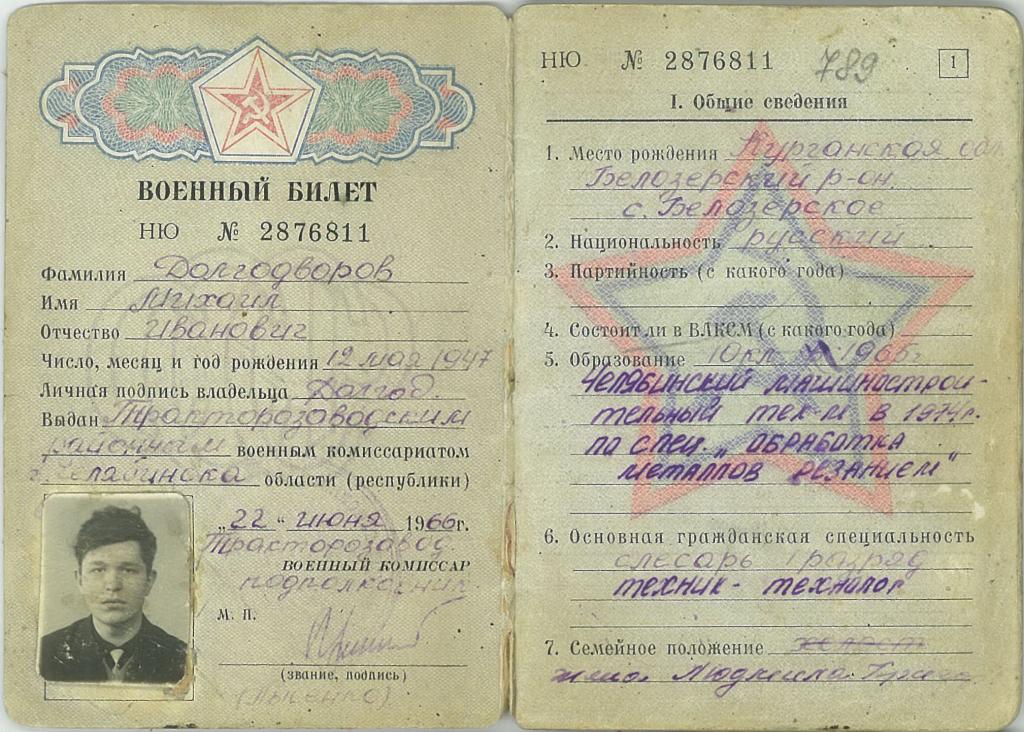 ВОЕННЫЙ БИЛЕТ
НЮ № 2876811
Фамилия Долгодворов
Имя Михаил
Отчество Иванович
Число, месяц и год рождения 12 мая 1947
Личная подпись владельца Долгод.
Выдан Тракторозаводским
районным военным комиссариатом
г. Челябинска области (республики)
„22“ июня 1966г.
Тракторозавод.
ВОЕННЫЙ КОМИССАР
подполковник
М. П.
(звание, подпись)
(Лысенко)
НЮ № 2876811 789 1
I. Общие сведения
1. Место рождения Курганская обл.
Белозерский р-он
с. Белозерское
2. Национальность русский
3. Партийность (с какого года)
4. Состоит ли в ВЛКСМ (с какого года)
5. Образование 10 кл в 1965г
Челябинский машинострои-
тельный тех-м в 1974г.
по спец. „обработка
металлов резанием"
6. Основная гражданская специальность
слесарь 1 разряд
техник-технолог
7. Семейное положение холост
жена Людмила